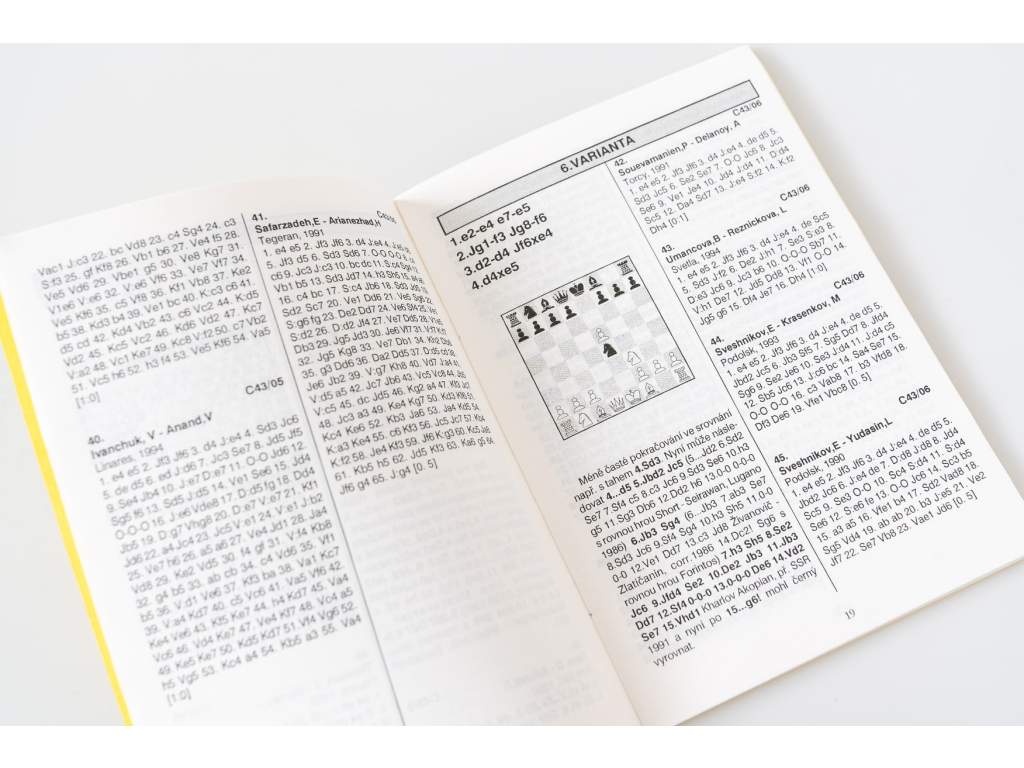 Vac1 J:c3 22. bc Vd8 23. c4 Sg4 24. c3
S:f3 25. gf Kf8 26. Vb1 b6 27. Ve4 f5 28.
Ve5 Vd6 29. Vbe1 g5 30. Ve8 Kg7 31.
V1e6 V:e6 32. V:e6 Vf6 33. Ve7 Vf7 34.
Ve5 Kf6 35. c5 Vf8 36. Kf1 Vb8 37. Ke2
b5 38. Kd3 b4 39. Ve1 bc 40. K:c3 c6 41.
d5 cd 42. Kd4 Vb2 43. c6 Vc2 44. K:d5
Vd2 45. Kc5 Vc2 46. Kd6 Vd2 47. Kc7
V:a2 48. Vc1 Ke7 49. Kc8 V:f2 50. c7 Vb2
51. Vc5 h6 52. h3 f4 53. Ve5 Kf6 54. Va5
[1:0]
C43/05
40.
Ivanchuk, V - Anand,V
Linares, 1994
1. e4 e5 2. Jf3 Jf6 3. d4 J:e4 4. Sd3 Jc6
5. de d5 6. ed J:d6 7. Jc3 Se7 8. Jd5 Jf5
9. Se4 Jb4 10. J:e7 D:e7 11. O-O Jd6 12.
Sg5 f6 13. Sd5 J:d5 14. Ve1 Se6 15. Jd4
O-O-O 16. J:e6 Vde8 17. D:d5 fg 18. Dd4
Jb5 19. D:g7 Vhg8 20. D:e7 V:e7 21. Kf1
Jd6 22. a4 Jc4 23. Jc5 V:e1 24. V:e1 J:b2
25. Ve7 h6 26. a5 a6 27. Ve4 Jd1 28. Ja4
Vd8 29. Ke2 Vd5 30. f4 gf 31. V:f4 Kb8
32. g4 b5 33. ab cb 34. c4 Vd6 35. Vf1
b5 36. V:d1 Ve6 37. Kf3 ba 38. Va1 Kc7
39. V:a4 Kd7 40. c5 Vc6 41. Va5 Vf6 42.
Ke4 Ve6 43. Kf5 Ke7 44. h4 Kd7 45. Va4
Vc6 46. Vd4 Ke7 47. Ve4 Kf7 48. Vc4 a5
49. Ke5 Ke7 50. Kd5 Kd7 51. Vf4 Vg6 52.
h5 Vg5 53. Kc4 a4 54. Kb5 a3 55. Va4
[1:0]
C43/05
41.
Safarzadeh,E - Arianezhad,H
Tegeran, 1991
1. e4 e5 2. Jf3 Jf6 3. d4 J:e4 4. de d5
5. Jf3 d5 6. Sd3 Sd6 7. O-O O-O
c6 9. Jc3 J:c3 10. bc dc 11. S:c4 Sg4
Vb1 b5 13. Sd3 Jd7 14. h3 Sh5 15.
16. c4 bc 17. S:c4 Jb6 18. Sd3
Sc7 20. Ve1 Dd6 21. Ve5 Sg6 22.
S:g6 fg 23. De2 Dd7 24. Ve6 Sf4 25.
S:d2 26. D:d2 Jf4 27. Ve7 Dd5 28.
Db3 29. Jg5 Jd3 30. Je6 Vf7 31.
32. Jg5 Kg8 33. Ve7 Db1 34. Kh2
35. g3 Dd6 36. Da2 Dd5 37. D:d5 cd 38.
Je6 Jb2 39. V:g7 Kh8 40. Vd7 J:a4 41.
V:d5 a5 42. Jc7 Jb6 43. Vc5 Vc8 44.
V:c5 45. dc Jd5 46. Kg2 a4 47. Kf3 Jc7
48. Jc3 a3 49. Ke4 Kg7 50. Kd3 Kf7
Kc4 Ke6 52. Kb3 Ja6 53. Ja4 Kd5 54.
K:a3 Ke4 55. c6 Kf3 56. Jc5 Jc7 57. Kb4
K:f2 58. Je4 Kf3 59. Jf6 K:g3 60. Kc5 Je6
61. Kb5 h5 62. Jd5 Kf3 63. Ka6 g5 64.
Jf6 g4 65. J:g4 [0. 5]
6.VARIANTA
1.e2-e4 e7-e5
2.Jg1-f3 Jg8-f6
3.d2-d4 Jf6xe4
4.d4xe5
Méně časté pokračování ve srovnání
např. s tahem 4.Sd3 Nyní může násle-
doval 4...d5 5.Jbd2 Jc5 (5...Jd2 6.Sd2
Se7 7.Sf4 c5 8.c3 Jc6 9.Sd3 Se6 10.h3
g5 11.Sg3 Db6 12.Dd2 h6 13.0-0-0 0-0-0
s rovnou hrou Short - Seirawan, Lugano
1986) 6.Jb3 Sg4 (6...Jb3 7.ab3 Se7
8.Sd3 Jc6 9.Sf4 Sg4 10.h3 Sh5 11.0-0
0-0 12.Ve1 Dd7 13.c3 Jd8 Živanović -
Zlatičanin, corr.1986 14.Dc2! Sg6 s
rovnou hrou Forintos) 7.h3 Sh5 8.Se2
Jc6 9.Jfd4 Se2 10.De2 Jb3 11.Jb3
Dd7 12.Sf4 0-0-0 13.0-0-0 De6 14.Vd2
Se7 15.Vhd1 Kharlov Akopian, př. SSR
1991 a nyní po 15...g6! mohl černý
vyrovnat.
C43/06
42.
Souevamanien,P - Delanoy, A
Torcy, 1991
1. e4 e5 2. Jf3 Jf6 3. d4 J:e4 4. de d5 5.
Sd3 Jc5 6. Se2 Se7 7. O-O Jc6 8. Jc3
Se6 9. Ve1 Je4 10. Jd4 J:d4 11. D:d4
Sc5 12. Da4 Sd7 13. J:e4 S:f2 14. K:f2
Dh4 [0:1]
C43/06
43.
Umancova,B - Reznickova, L
Svetla, 1994
1. e4 e5 2. Jf3 Jf6 3. d4 J:e4 4. de Sc5
5. Sd3 J:f2 6. De2 J:h1 7. Se3 S:e3 8.
D:e3 Jc6 9. Jc3 b6 10. O-O-O Sb7 11.
V:h1 De7 12. Jd5 Dd8 13. Vf1 O-O 14.
Jg5 g6 15. Df4 Je7 16. Dh4 [1:0]
C43/06
44.
Sveshnikov,E - Krasenkov, M
Podolsk, 1993
1. e4 e5 2. Jf3 Jf6 3. d4 J:e4 4. de d5 5.
Jbd2 Jc5 6. Jb3 Sf5 7. Sg5 Dd7 8. Jfd4
Sg6 9. Se2 Je6 10. Se3 J:d4 11. J:d4 c5
12. Sb5 Jc6 13. J:c6 bc 14. Sa4 Se7 15.
O-O O-O 16. c3 Vab8 17. b3 Vfd8 18.
Df3 De6 19. Vfe1 Vbc8 [0. 5]
C43/06
45.
Sveshnikov,E - Yudasin,L
Podolsk, 1990
1. e4 e5 2. Jf3 Jf6 3. d4 J:e4 4. de d5 5.
Jbd2 Jc6 6. J:e4 de 7. D:d8 J:d8 8. Jd4
Sc5 9. Se3 O-O 10. Sc4 S:d4 11. S:d4
Se6 12. S:e6 fe 13. O-O Jc6 14. Sc3 b5
15. a3 a5 16. Vfe1 b4 17. Sd2 Vad8 18.
Sg5 Vd4 19. ab ab 20. b3 J:e5 21. Ve2
Jf7 22. Se7 Vb8 23. Vae1 Jd6 [0. 5]
19